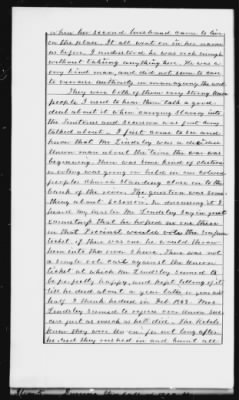 when her second husband came to live
on the place. It all went on in her name
as before. I understood he was rich enough
without taking anything here. He was a
very kind man, and did not seem to care
to exercise authority in managing the work
They were both of them very strong Union
people. I used to hear them talk a good
deal about it when carrying slaves into
the Territories and secession was first being
talked about. I just come to see and
know that Mr Lindsley was a decided
Union man about the time the war was
beginning. There was some kind of election
or voting was going on held in our colored
peoples church standing close on to the
bank of the river. The question was some-
thing about secession. In discussing it I
heard my master Mr. Lindsley say in great
that he hoped no one there
in that Precinct would vote the
ticket, if there was one he would throw
him into the river I know. There was not
a single vote cast against the Union
ticket at which Mr Lindsley seemed to
be perfectly happy, and kept telling of it
till he died about a year later or year and
half I think he died in Feb 1863. Mrs
Lindsley seemed to rejoice over Union suc-
cess just as much as he did. The Rebels
knew they were Union for not long after
he died they rushed in and burnt all